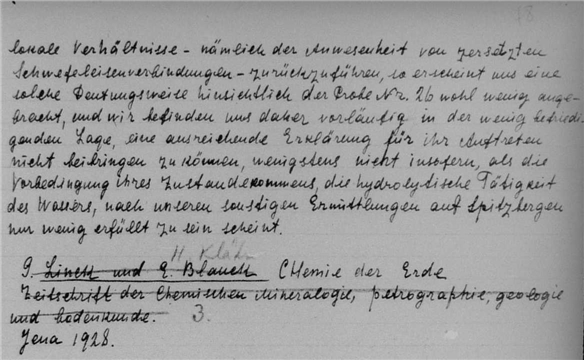 lokale Verhältnisse - nämlich der Anwesenheit von zersetzten
Schwefeleisenverbindungen - zurückzuführen, so erscheint uns eine
solche Deutungsweise hinsichtlich der Probe Nr. 26 wohl wenig ange-
bracht, und wir befinden uns daher vorläufig in der wenig befriedi-
genden Lage, eine ausreichende Erklärung für ihr Auftreten
nicht beibringen zu können, wenigstens nicht insofern, als die
Vorbedingung ihres Zustandekommens, die hydrolytische Tätigkeit
des Wassers, nach unseren sonstigen Ermittlungen auf Spitzbergen
nur wenig erfüllt zu sein scheint.
H.
G. Linck und E. Blanck Chemie der Erde
Zeitschrift der Chemischen Mineralogie, petrographie, geologie
und bodenkunde. 3.
Jena 1928.